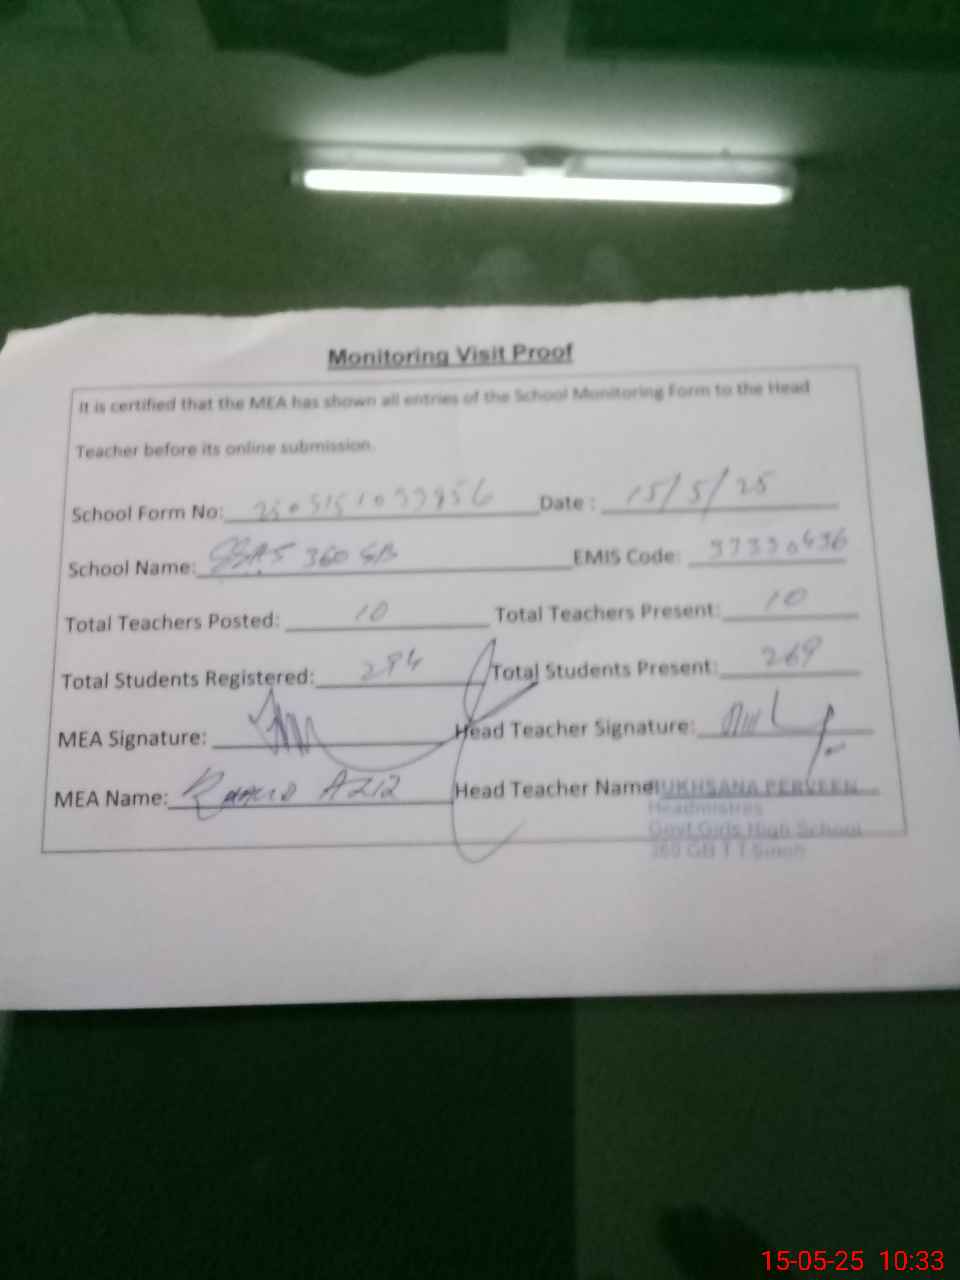 Monitoring Visit Proof
It is certified that the MEA has shown all entries of the School Monitoring Form to the Head
Teacher before its online submission.
School Form No: Date : 15/5/25
School Name: 360 GB EMIS Code:
Total Teachers Posted: 10 Total Teachers Present: 10
Total Students Registered: 294 Total Students Present: 269
MEA Signature: Head Teacher Signature:
MEA Name: AZIZ Head Teacher Name RUKHSANA PERVEEN
Headmistres
Govt.Girls High School
360 GB T.T.Singh
15-05-25 10:33